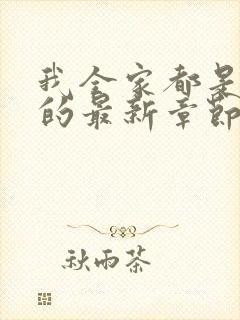 我全家都是
的最新章节
秋雨茶